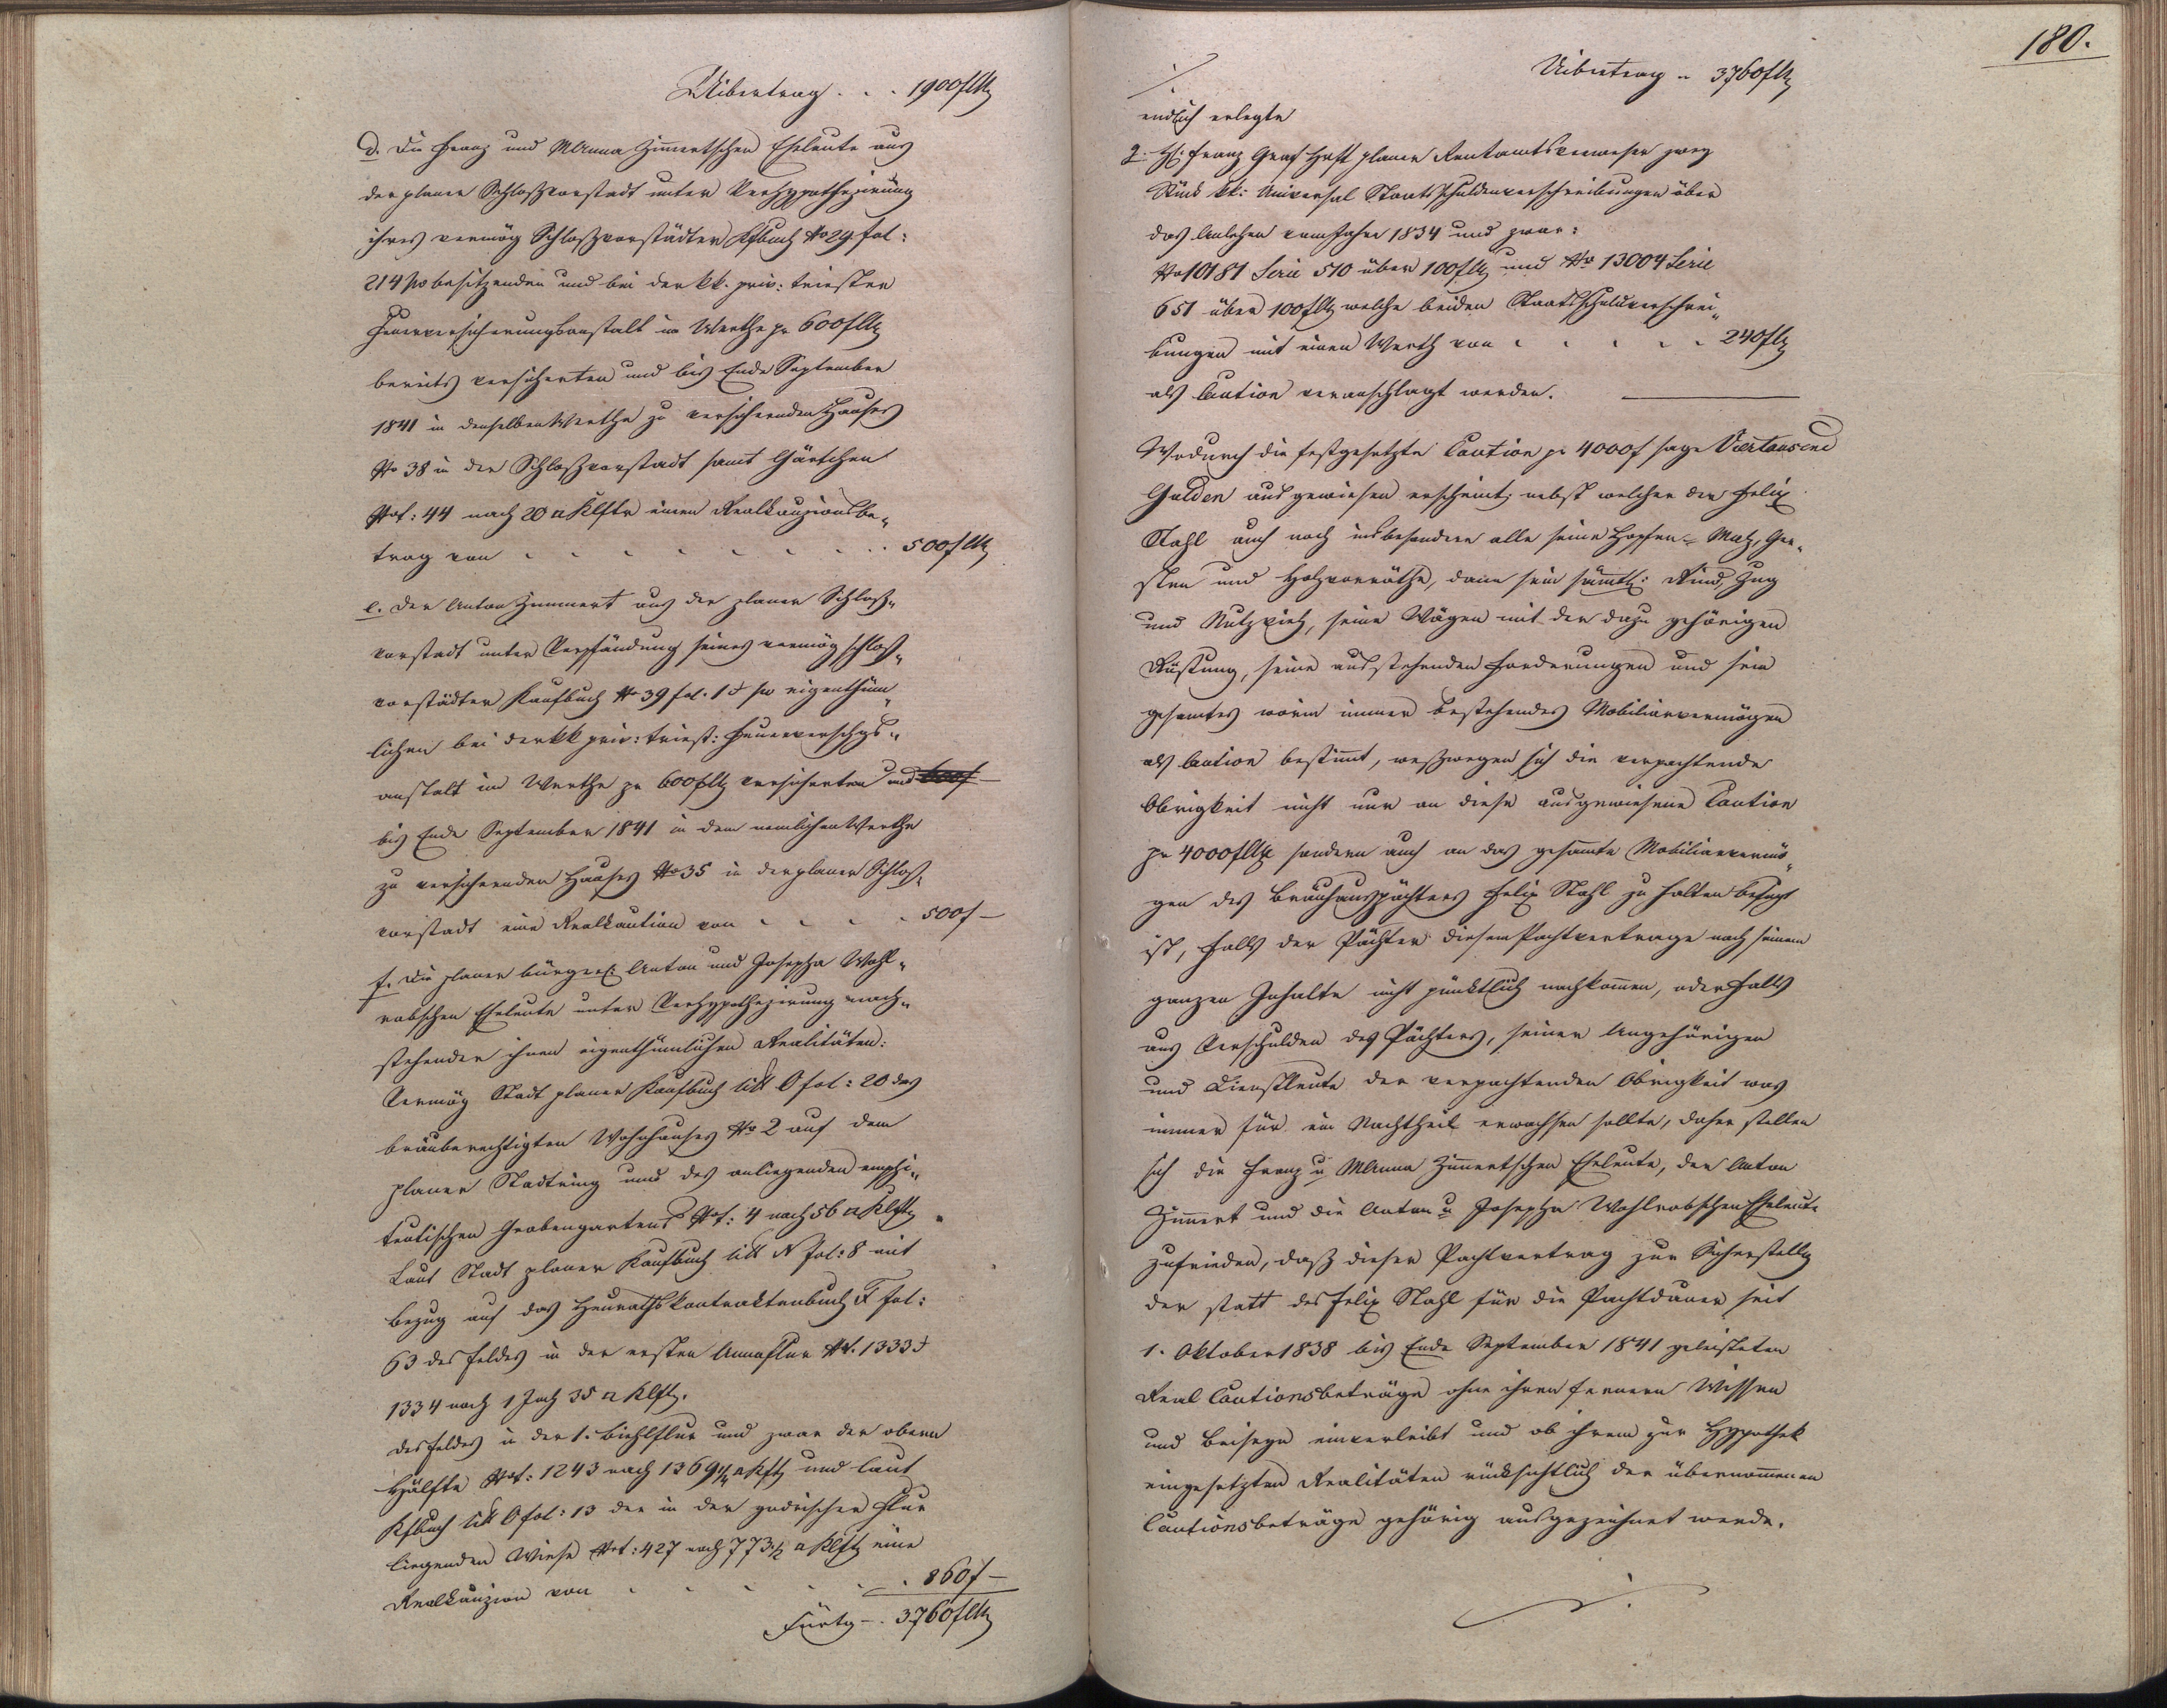 Uibertrag . . . 1900f CMz
d. Die Franz und MAnna Zimertschen Eheleute aus
der planer Schloßvorstadt unter Verhypothezirung
ihres vermög Schloßvorstädter Kfbuch No 29 fol:
214 p⁰ besitzenden und bei der kk. priv: triester
Feuerversicherungsanstalt im Werthe pr 600f CMz
bereits versicherten und bis Ende September
1841 in denselben Werthe zu versichernden Hauses
No 38 in der Schloßvorstadt samt Gärtchen
Nof: 44 nach 20 □ Klftr einen Realkauzionsbe„
trag von . . . . . . . . 500f CMz
e. Der Anton Zimmert aus der planer Schloß„
vorstadt unter Verpfändung seines vermög schloß„
vorstädter Kaufbuch No 39 fol. 1 p⁰ eigenthüm„
lichen bei der kk priv: triest: Feuerverschgs„
anstalt im Werthe pr 600f CMz versicherten und 600f
bis Ende September 1841 in dem nemlichen Werthe
zu versichernden Hauses No 35 in der planer Schloß„
vorstadt eine Realkaution von . . . . 500f —
f. Die planer bürgerl: Anton und Josepha Wohl„
rabschen Eheleute unter Verhypothezirung nach„
stehender ihnen eigenthümlichen Realitäten:
Vermög Stadt planer Kaufbuch litt O fol: 20 des
bräuberechtigten Wohnhauses No 2 auf dem
planer Stadtring und des anliegenden emphi„
teutischen Grabengartens Nof: 4 nach 56 □ Klftr
Laut Stadt planer Kaufbuch litt N fol: 8 mit
Bezug auf das Heurathskontraktenbuch F fol:
63 des Feldes in der ersten Annaflur No. 1333 &
1334 nach 1 Joch 35 □ Klftr.
des Feldes in der 1. Biehlflur und zwar der obern
Hälfte Nof: 1243 nach 1369 □ Klftr und laut
Kfbuch litt O fol: 13 der in der godrischer Flur
liegenden Wiese Not: 427 nach 773½ □ Klftr eine
Realkauzion von . . . . . . 860f —
Fürtg —. 3760f CMz
180.
Uibertrag „ 3760f CMz
endlich erlegte
2. H: Franz Graf Hft planer Rentamtsverweser zwey
Stück kk: Universal Staatsschuldenverschreibungen über
das Anlehen vom Jahre 1834 und zwar:
No 10181 Serie 510 über 100f CMz und No 13004 Serie
651 über 100f CMz welche beiden Staatsschuldverschrei„
bungen mit einen Werth von . . . . . 240f CMz
als Caution veranschlagt werden.
Wodurch die festgesetzte Caution pr 4000f sage Viertausend
Gulden ausgewiesen erscheint, nebst welcher der Felix
Stahl auch noch insbesondere alle seine Hopfen- Malz, Ger„
sten und Holzvorräthe, dann sein sämtl: Rind, Zug
und Nutzvieh, seine Wägen mit der dazu gehörigen
Rüstung, seine ausstehenden Forderungen und sein
gesamtes worin immer bestehendes Mobiliarvermögen
als Caution bestimt, weßwegen sich die verpachtende
Obrigkeit nicht nur an diese ausgewiesene Caution
pr 4000f CMz sondern auch an das gesamte Mobiliarvermö„
gen des Bräuhauspächters Felix Stahl zu halten befugt
ist, falls der Pächter diesem Pachtvertrage nach seinem
ganzen Inhalte nicht pünktlich nachkomen, oder falls
aus Verschulden des Pächters, seiner Angehörigen
und Dienstleute der verpachtenden Obrigkeit was
immer für ein Nachtheil erwachsen sollte, daher stellen
sich die Franz u MAnna Zimertschen Eheleute, der Anton
Zimert und die Anton u Josepha Wohlrabschen Eheleute
zufrieden, daß dieser Pachtvertrag zur Sicherstellg
der statt des Felix Stahl für die Pachtdauer seit
1. Oktober 1838 bis Ende September 1841 geleisteten
Real Cautionsbeträge ohne ihren fernern Wissen
und Beiseyn einverleibt und ob ihrem zur Hypothek
eingesetzten Realitäten rücksichtlich der übernommenen
Cautionsbeträge gehörig ausgezeichnet werde.